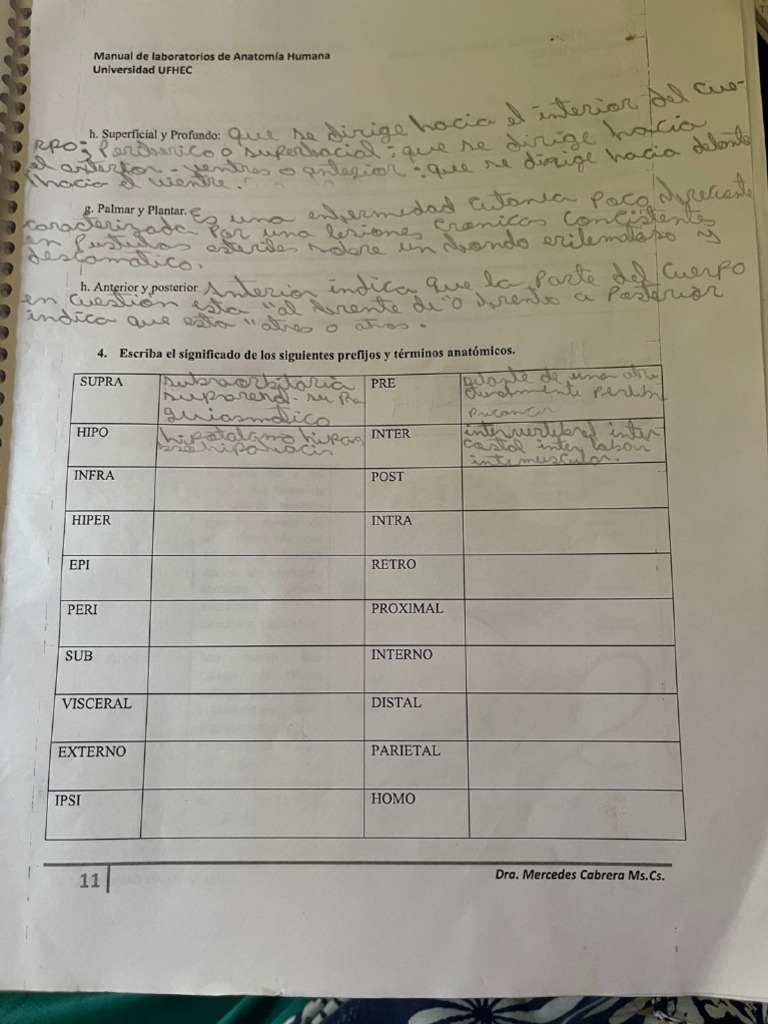 Manual de laboratorios de Anatomía Humana
Universidad UFHEC
h. Superficial y Profundo: que se dirige hacia el interior del cue-
RPO: Periberico o superbacial: que se dirige hacia
el anterior - ventres o anterior: que se dirige hacia delante
hacia el vientre.
g. Palmar y Plantar. Es una enfermedad cutanea poco frecuente
caracterizada Por una lesiones cronicas consistentes
en Pustulas esteriles sobre un fondo y
descamatico.
h. Anterior y posterior Anterior indica que la Parte del cuerpo
en cuestion esta "al frente de" o frente a Posterior
indica que esta "atres o atras.
4. Escriba el significado de los siguientes prefijos y términos anatómicos.
SUPRA PRE delante de una
suprarenal
HIPO hipotalamo INTER intervertebral inter
costal inter labor
intemuscular.
INFRA POST
HIPER INTRA
EPI RETRO
PERI PROXIMAL
SUB INTERNO
VISCERAL DISTAL
EXTERNO PARIETAL
IPSI HOMO
11 Dra. Mercedes Cabrera Ms.Cs.